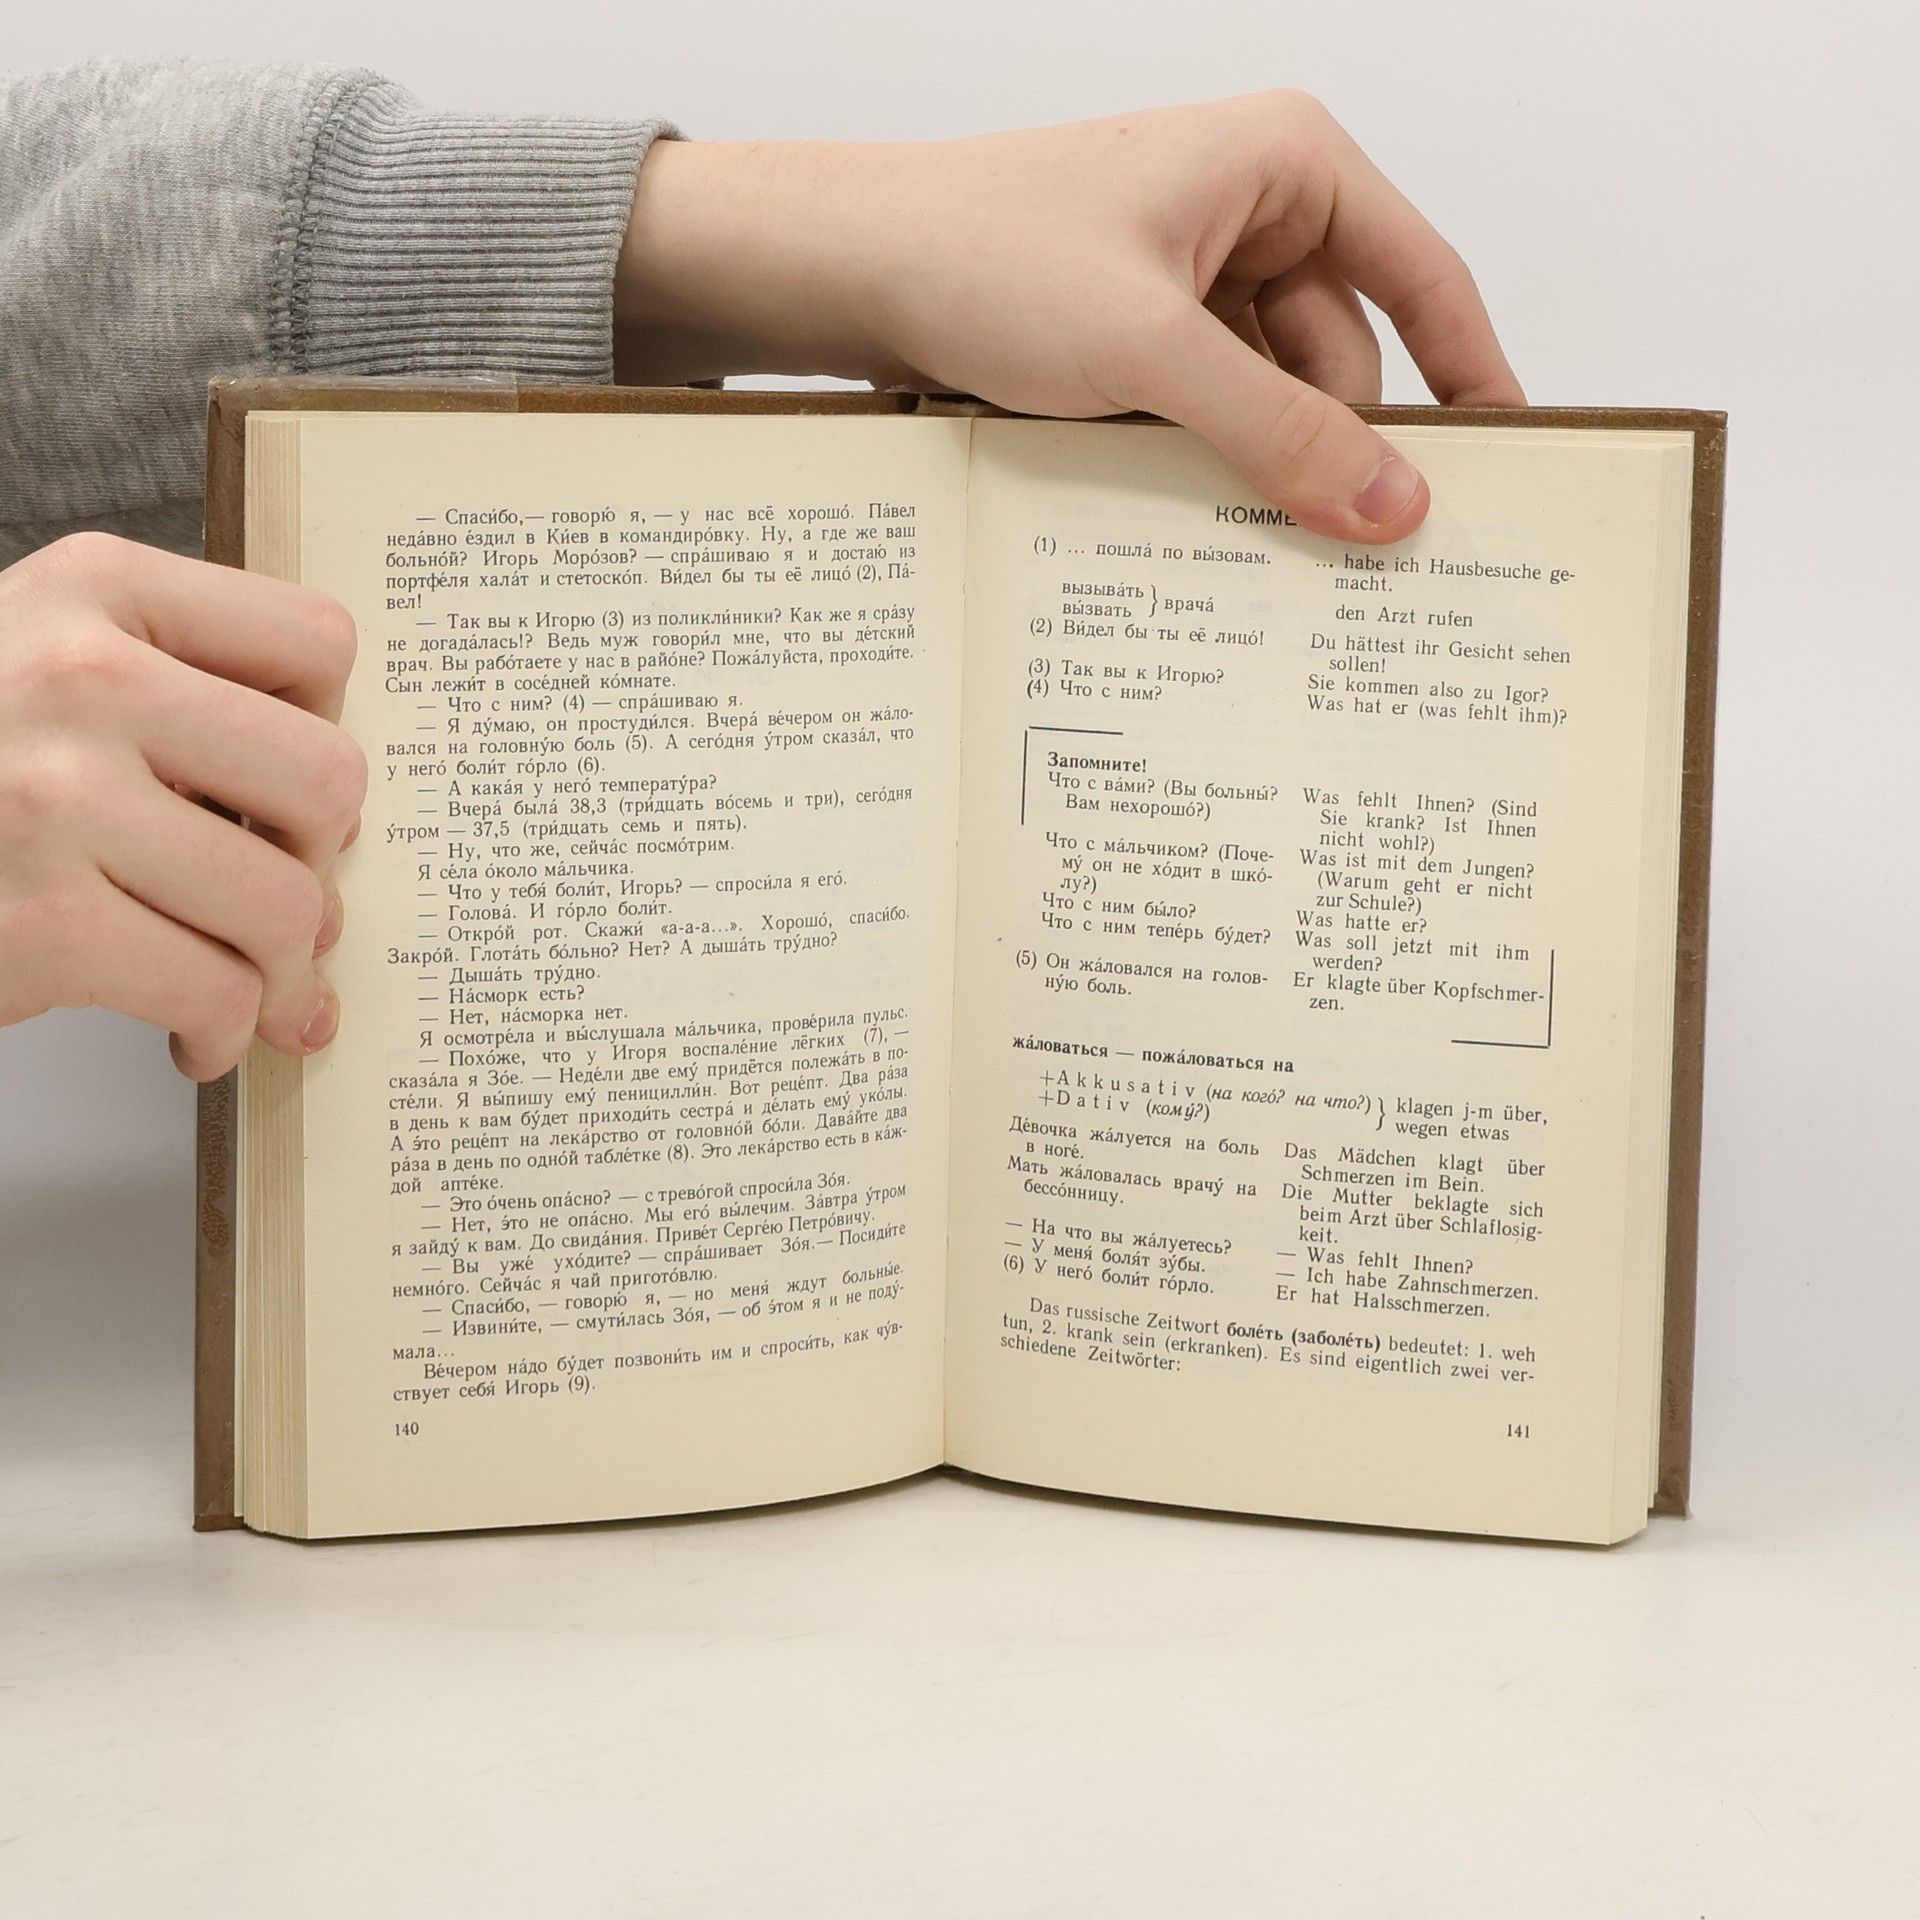 — Спаси́бо,— говорю́ я, — у нас всё хорошо́. Па́вел
неда́вно е́здил в Ки́ев в командиро́вку. Ну, а где же ваш
больно́й? Игорь Моро́зов? — спра́шиваю я и достаю́ из
портфе́ля хала́т и стетоско́п. Ви́дел бы ты её лицо́ (2), Па́-
вел!
— Так вы к Игорю (3) из поликли́ники? Как же я сра́зу
не догада́лась!? Ведь муж говори́л мне, что вы де́тский
врач. Вы рабо́таете у нас в райо́не? Пожа́луйста, проходи́те.
Сын лежи́т в сосе́дней ко́мнате.
— Что с ним? (4) — спра́шиваю я.
— Я ду́маю, он простуди́лся. Вчера́ ве́чером он жа́ло-
вался на головну́ю боль (5). А сего́дня у́тром сказа́л, что
у него́ боли́т го́рло (6).
— А кака́я у него́ температу́ра?
— Вчера́ была́ 38,3 (три́дцать во́семь и три), сего́дня
у́тром — 37,5 (три́дцать семь и пять).
— Ну, что же, сейча́с посмо́трим.
Я се́ла о́коло ма́льчика.
— Что у тебя́ боли́т, Игорь? — спроси́ла я его́.
— Голова́. И го́рло боли́т.
— Откро́й рот. Скажи́ «а-а-а...». Хорошо́, спаси́бо.
Закро́й. Глота́ть бо́льно? Нет? А дыша́ть тру́дно?
— Дыша́ть тру́дно.
— На́сморк есть?
— Нет, на́сморка нет.
Я осмотре́ла и вы́слушала ма́льчика, прове́рила пульс.
— Похо́же, что у Игоря воспале́ние лёгких (7), —
сказа́ла я Зо́е. — Неде́ли две ему́ придётся полежа́ть в по-
сте́ли. Я вы́пишу ему́ пеницилли́н. Вот реце́пт. Два ра́за
в день к вам бу́дет приходи́ть сестра́ и де́лать ему́ уко́лы.
А э́то реце́пт на лека́рство от головно́й бо́ли. Дава́йте два
ра́за в день по одно́й табле́тке (8). Э́то лека́рство есть в ка́ж-
дой апте́ке.
— Это о́чень опа́сно? — с трево́гой спроси́ла Зо́я.
— Нет, э́то не опа́сно. Мы его́ вы́лечим. За́втра у́тром
я зайду́ к вам. До свида́ния. Приве́т Серге́ю Петро́вичу.
— Вы уже́ ухо́дите? — спра́шивает Зо́я.— Посиди́те
немно́го. Сейча́с я чай пригото́влю.
— Спаси́бо, — говорю́ я, — но меня́ ждут больны́е.
— Извини́те, — смути́лась Зо́я, — об э́том я и не поду́-
мала...
Ве́чером на́до бу́дет позвони́ть им и спроси́ть, как чу́в-
ствует себя́ Игорь (9).
140
КОММЕ
(1) ... пошла́ по вы́зовам.
... habe ich Hausbesuche ge-
macht.
вызыва́ть
вы́звать } врача́
den Arzt rufen
(2) Ви́дел бы ты её лицо́!
Du hättest ihr Gesicht sehen
sollen!
(3) Так вы к Игорю?
Sie kommen also zu Igor?
(4) Что с ним?
Was hat er (was fehlt ihm)?
Запомните!
Что с ва́ми? (Вы больны́?
Вам нехорошо́?)
Was fehlt Ihnen? (Sind
Sie krank? Ist Ihnen
nicht wohl?)
Что с ма́льчиком? (Поче-
му́ он не хо́дит в шко́-
лу?)
Was ist mit dem Jungen?
(Warum geht er nicht
zur Schule?)
Что с ним бы́ло?
Was hatte er?
Что с ним тепе́рь бу́дет?
Was soll jetzt mit ihm
werden?
(5) Он жа́ловался на голов-
ну́ю боль.
Er klagte über Kopfschmer-
zen.
жа́ловаться — пожа́ловаться на
+Akkusativ (на кого́? на что?)
+Dativ (кому́?)
} klagen j-m über,
wegen etwas
Де́вочка жа́луется на боль
в ноге́.
Das Mädchen klagt über
Schmerzen im Bein.
Мать жа́ловалась врачу́ на
бессо́нницу.
Die Mutter beklagte sich
beim Arzt über Schlaflosig-
keit.
— На что вы жа́луетесь?
— Was fehlt Ihnen?
— У меня́ боля́т зу́бы.
— Ich habe Zahnschmerzen.
(6) У него́ боли́т го́рло.
Er hat Halsschmerzen.
Das russische Zeitwort боле́ть (заболе́ть) bedeutet: 1. weh
tun, 2. krank sein (erkranken). Es sind eigentlich zwei ver-
schiedene Zeitwörter:
141